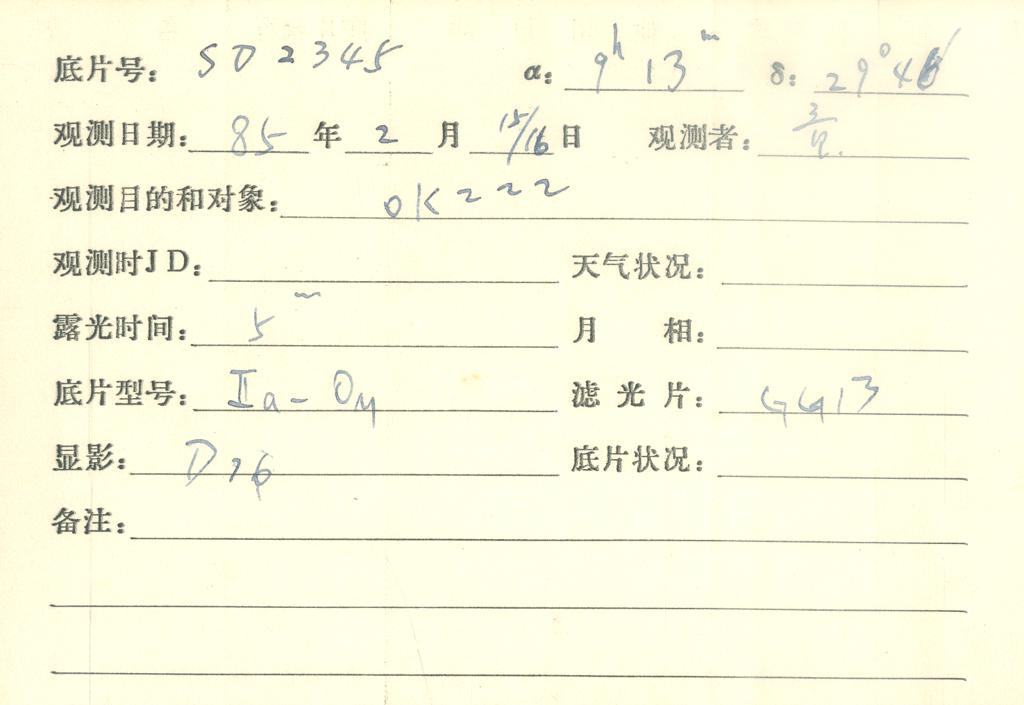 底片号: SO2345 α: 9h 13m δ: 29°
观测日期: 85 年 2 月 15/16 日 观测者:
观测目的和对象: OK222
观测时JD: 天气状况:
露光时间: 5m 月 相:
底片型号: IIa-O 滤光片: GG13
显影: D76 底片状况:
备注: